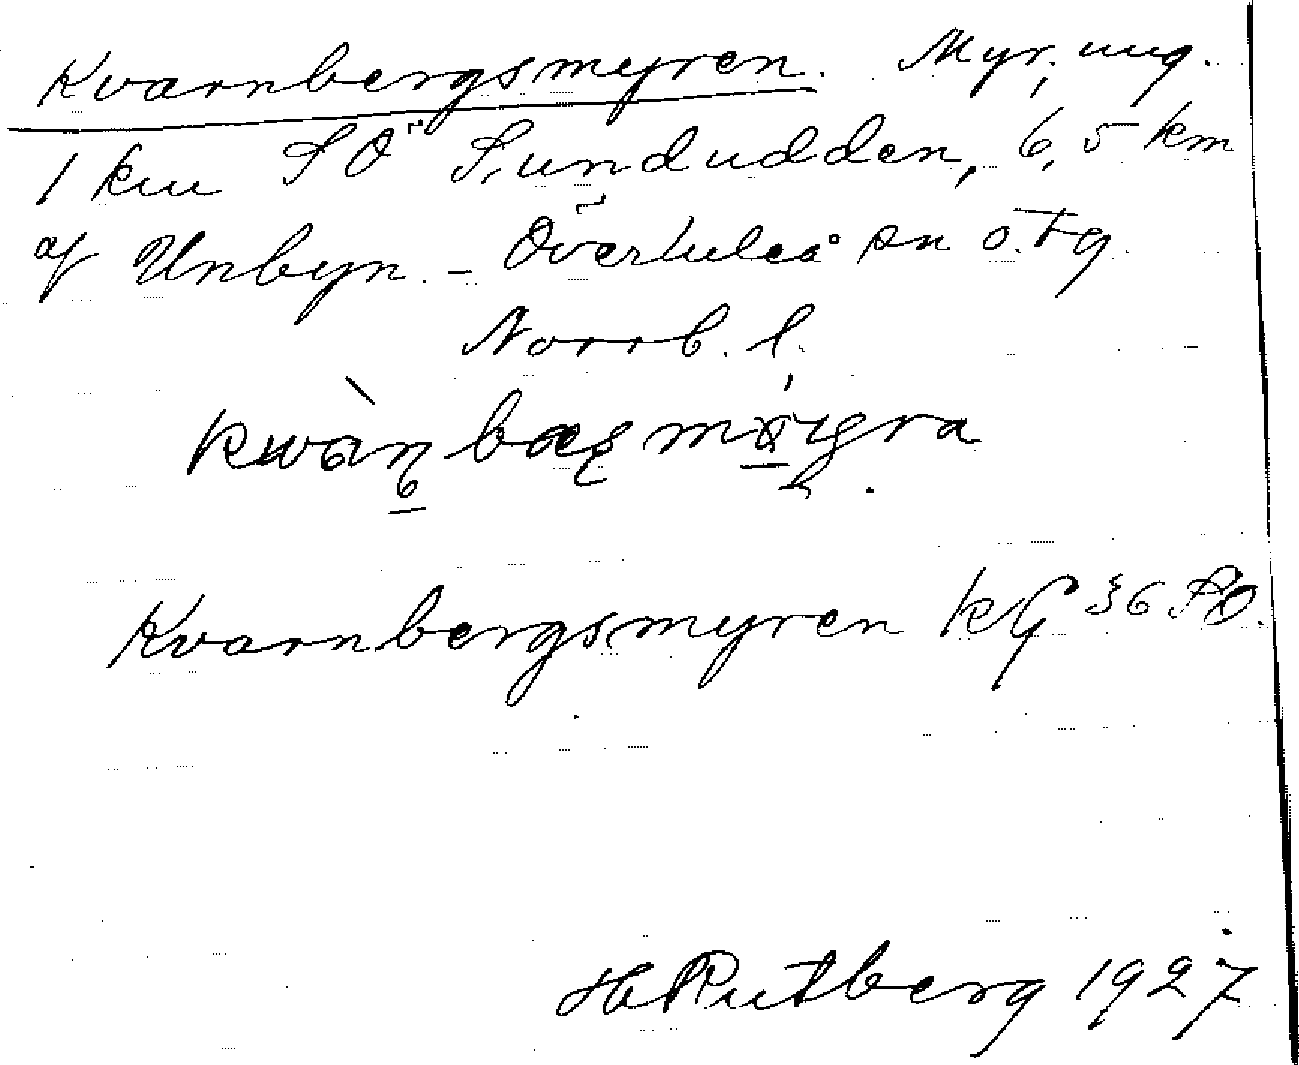 Kvarnbergsmyren. Myr, ung.
1 km SO Sundudden, 6,5 km
af Unbyn. - Överluleå sn ö. tg.
Norrb. l.
Kvarnbergsmyren kG 36 SO.
H Rutberg 1927